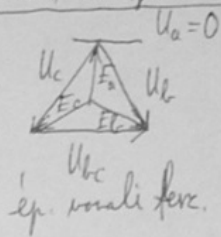 Uₐ=0
U꜀ Eₐ U_b
E꜀ E_b
U_bc
ép. vonali fesz.